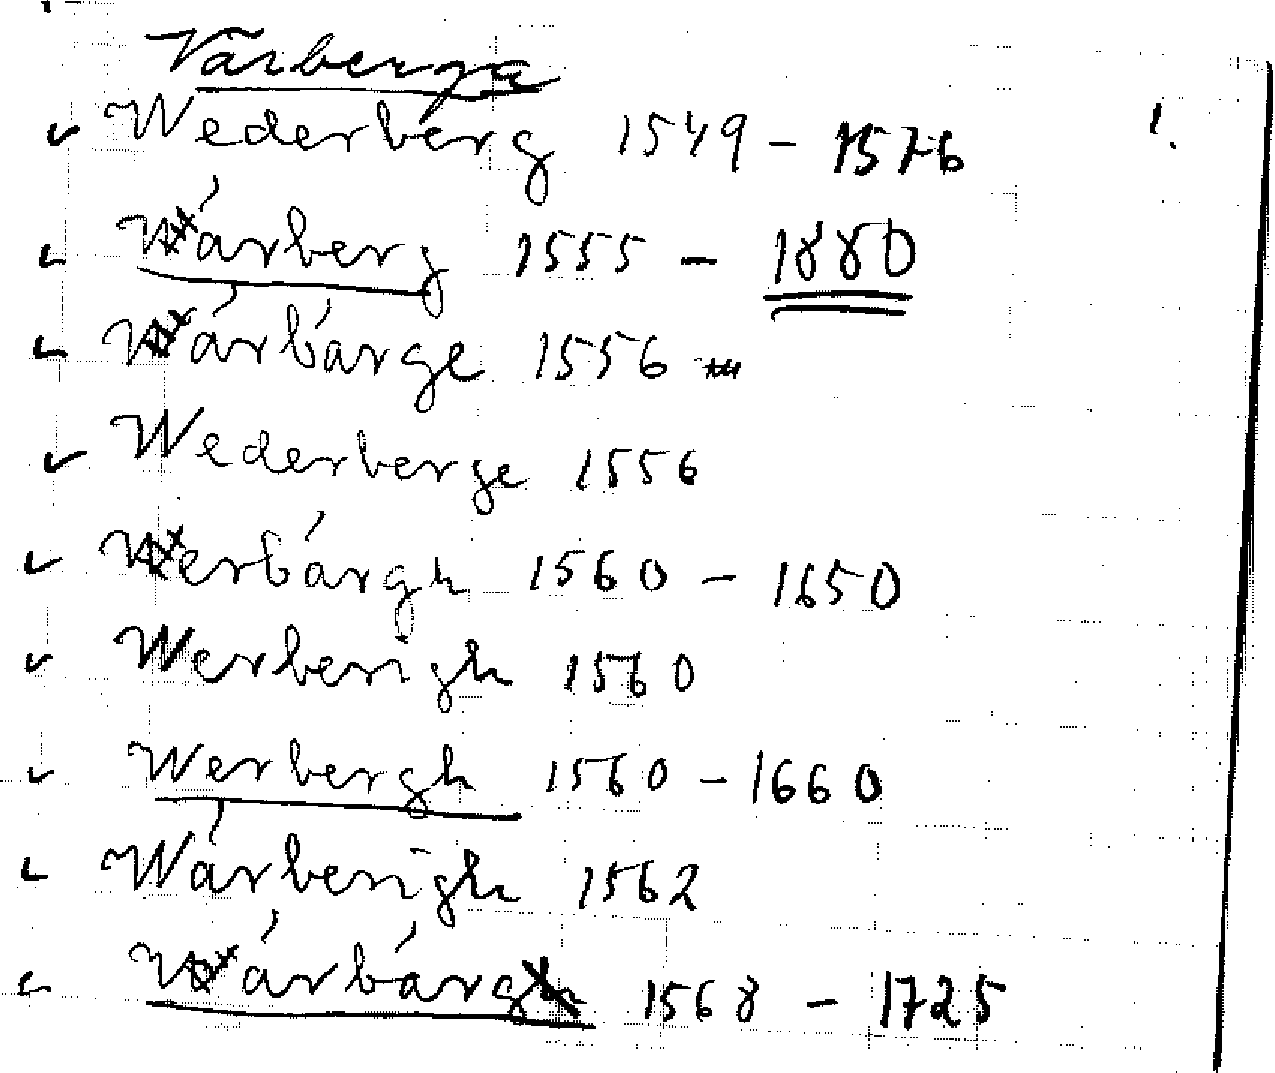 Varberga
Wederberg 1549 - 1576
Wárberg 1555 - 1880
Wárbárge 1556
Wederberge 1556
Werbárgh 1560 - 1650
Werberigh 1560
Werbergh 1560 - 1660
Wárberigh 1562
Wárbárg 1568 - 1725